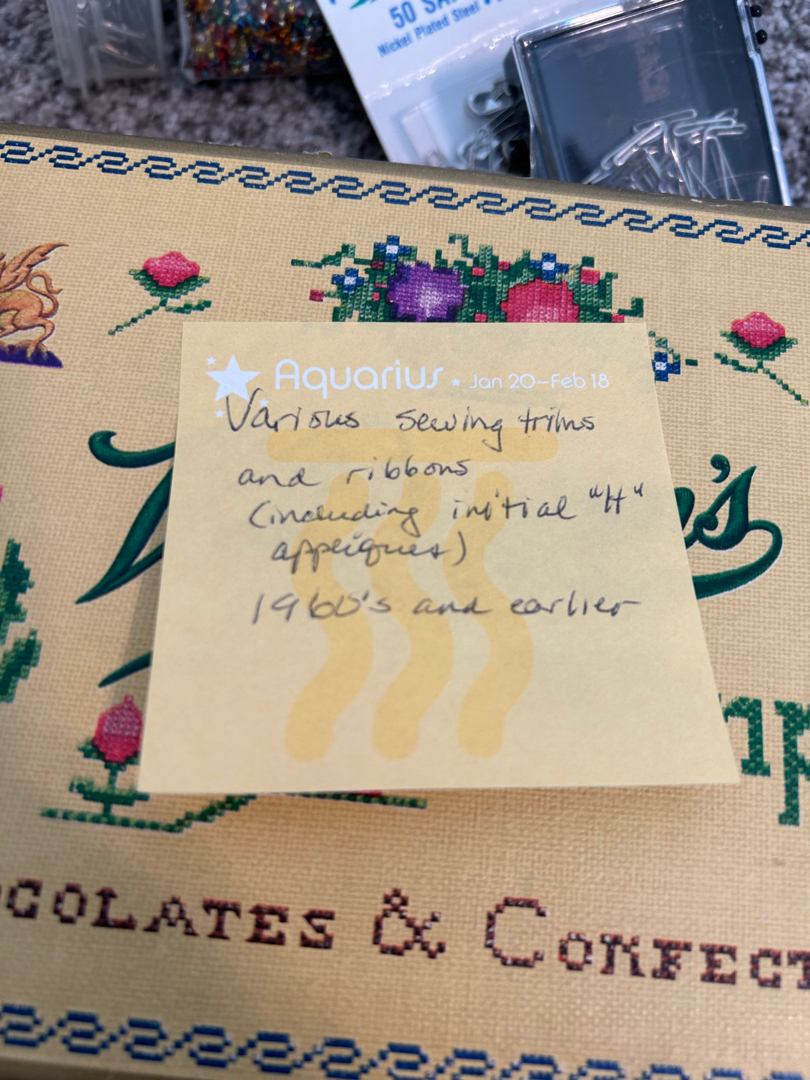 50 SA
Nickel Plated Steel
Aquarius ★ Jan 20–Feb 18
Various sewing trims
and ribbons
(including initial "H"
appliques)
1960's and earlier
's
mp
OCOLATES & CONFECT